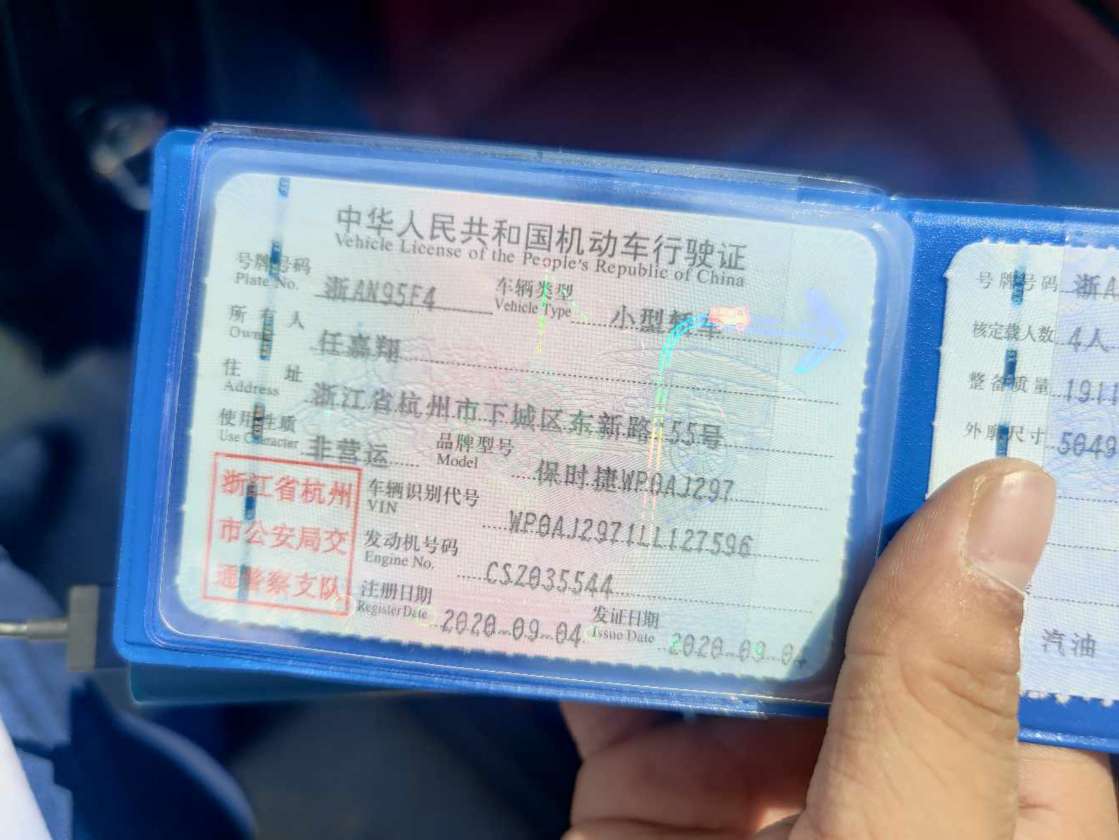 中华人民共和国机动车行驶证
Vehicle License of the People's Republic of China
号牌号码 浙AN95F4 车辆类型 小型轿车
Plate No. Vehicle Type
所有人 任嘉翔
Owner
住址 浙江省杭州市下城区东新路155号
Address
使用性质 非营运 品牌型号 保时捷WP0AJ297
Use Character Model
浙江省杭州
市公安局交
通警察支队
车辆识别代号 WP0AJ2971LL127596
VIN
发动机号码 CSZ035544
Engine No.
注册日期 2020-09-04 发证日期 2020-09-04
Register Date Issue Date
号牌号码 浙A
核定载人数 4人
整备质量 191
外廓尺寸 5049
汽油